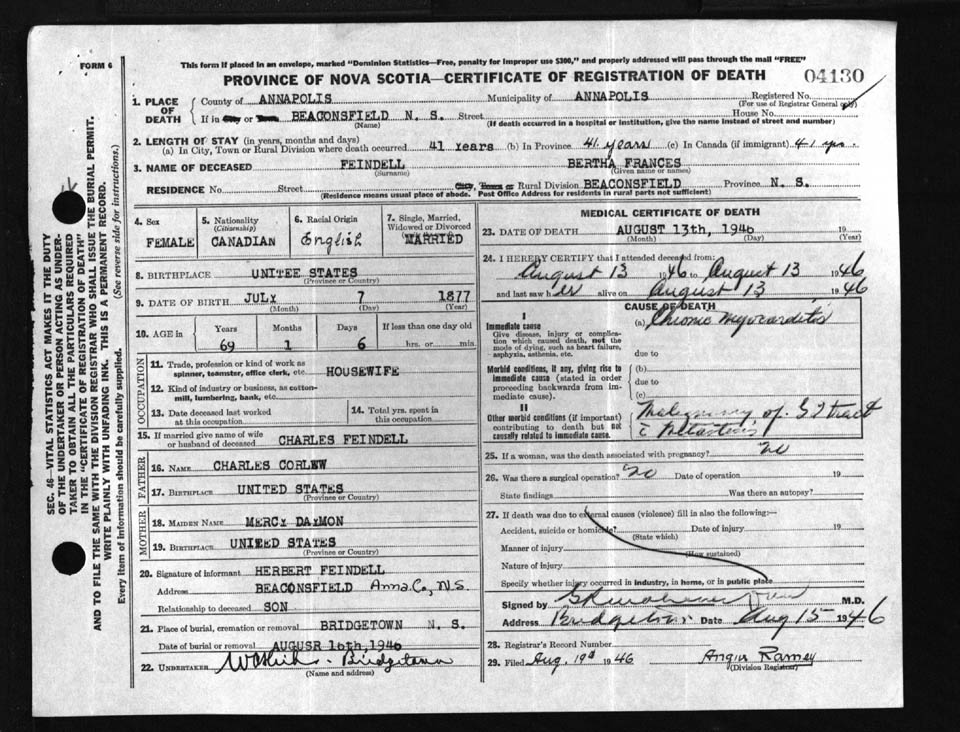 FORM 6
This form if placed in an envelope, marked "Dominion Statistics—Free, penalty for improper use $300," and properly addressed will pass through the mail "FREE"
PROVINCE OF NOVA SCOTIA—CERTIFICATE OF REGISTRATION OF DEATH 04130
1. PLACE OF DEATH
County of ANNAPOLIS Municipality of ANNAPOLIS Registered No.
(For use of Registrar General only)
If in City or Town BEACONSFIELD N. S. Street House No.
(Name) (If death occurred in a hospital or institution, give the name instead of street and number)
2. LENGTH OF STAY (in years, months and days)
(a) In City, Town or Rural Division where death occurred 41 Years (b) In Province 41 years (c) In Canada (if immigrant) 41 yrs.
3. NAME OF DECEASED FEINDELL BERTHA FRANCES
(Surname) (Given name or names)
RESIDENCE No. Street City, Town or Rural Division BEACONSFIELD Province N. S.
(Residence means usual place of abode. Post Office Address for residents in rural parts not sufficient)
4. Sex
FEMALE
5. Nationality
(Citizenship)
CANADIAN
6. Racial Origin
English
7. Single, Married, Widowed or Divorced
MARRIED
8. BIRTHPLACE UNITEE STATES
(Province or Country)
9. DATE OF BIRTH JULY 7 1877
(Month) (Day) (Year)
10. AGE in Years Months Days If less than one day old
69 1 6 hrs. or min.
OCCUPATION
11. Trade, profession or kind of work as spinner, teamster, office clerk, etc. HOUSEWIFE
12. Kind of industry or business, as cotton-mill, lumbering, bank, etc.
13. Date deceased last worked at this occupation
14. Total yrs. spent in this occupation
15. If married give name of wife or husband of deceased CHARLES FEINDELL
FATHER
16. NAME CHARLES CORLEW
17. BIRTHPLACE UNITED STATES
(Province or Country)
MOTHER
18. MAIDEN NAME MERCY DAYMON
19. BIRTHPLACE UNITED STATES
(Province or Country)
20. Signature of informant HERBERT FEINDELL
Address BEACONSFIELD Anna. Co., N.S.
Relationship to deceased SON
21. Place of burial, cremation or removal BRIDGETOWN N. S.
Date of burial or removal AUGUSR 16th, 1946
22. UNDERTAKER Bridgetown
(Name and address)
MEDICAL CERTIFICATE OF DEATH
23. DATE OF DEATH AUGUST 13th, 1946 19
(Month) (Day) (Year)
24. I HEREBY CERTIFY that I attended deceased from:
August 13 1946 to August 13 1946
and last saw her alive on August 13 1946
CAUSE OF DEATH
I
Immediate cause
Give disease, injury or complication which caused death, not the mode of dying, such as heart failure, asphyxia, asthenia, etc.
(a) Chronic Myocarditis
due to
Morbid conditions, if any, giving rise to immediate cause (stated in order proceeding backwards from immediate cause).
(b)
due to
(c)
II
Other morbid conditions (if important) contributing to death but not causally related to immediate cause.
Malignancy of G I tract
c̄ Metastasis
25. If a woman, was the death associated with pregnancy? no
26. Was there a surgical operation? no Date of operation 19
State findings Was there an autopsy?
27. If death was due to external causes (violence) fill in also the following:—
Accident, suicide or homicide? Date of injury 19
(State which)
Manner of injury
(How sustained)
Nature of injury
Specify whether injury occurred in industry, in home, or in public place
Signed by M.D.
Address Bridgetown Date Aug 15 1946
28. Registrar's Record Number
29. Filed Aug. 19th 1946 Angus Ramey
(Division Registrar)
SEC. 46—VITAL STATISTICS ACT MAKES IT THE DUTY
OF THE UNDERTAKER OR PERSON ACTING AS UNDER-
TAKER TO OBTAIN ALL THE PARTICULARS REQUIRED
IN THE "CERTIFICATE OF REGISTRATION OF DEATH"
AND TO FILE THE SAME WITH THE DIVISION REGISTRAR WHO SHALL ISSUE THE BURIAL PERMIT.
WRITE PLAINLY WITH UNFADING INK. THIS IS A PERMANENT RECORD.
Every item of information should be carefully supplied. (See reverse side for instructions.)